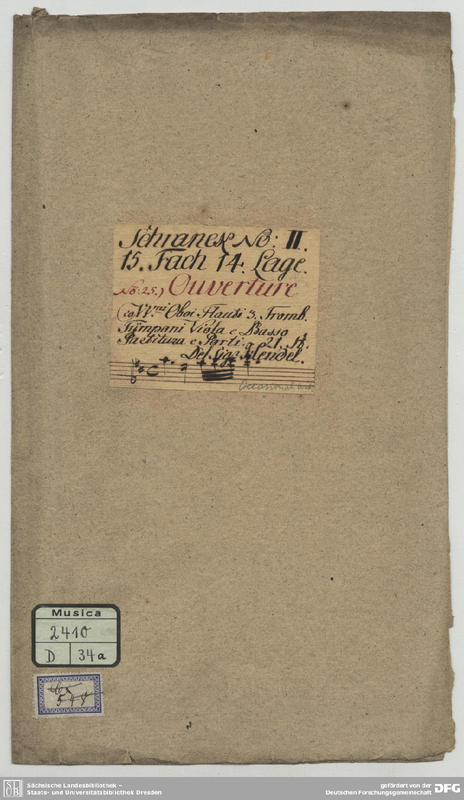 Schranck No: II.
15. Fach 14. Lage.
No: 25.) Ouverture
co VV.ni Oboi Flauti 3. Tromb.
Tympani Viola e Basso
Partitura e Parti. 21. St.
Del Sigr. Hendel.
Occasional
Musica
2410
D 34a
Sächsische Landesbibliothek –
Staats- und Universitätsbibliothek Dresden
gefördert von der
Deutschen Forschungsgemeinschaft
DFG